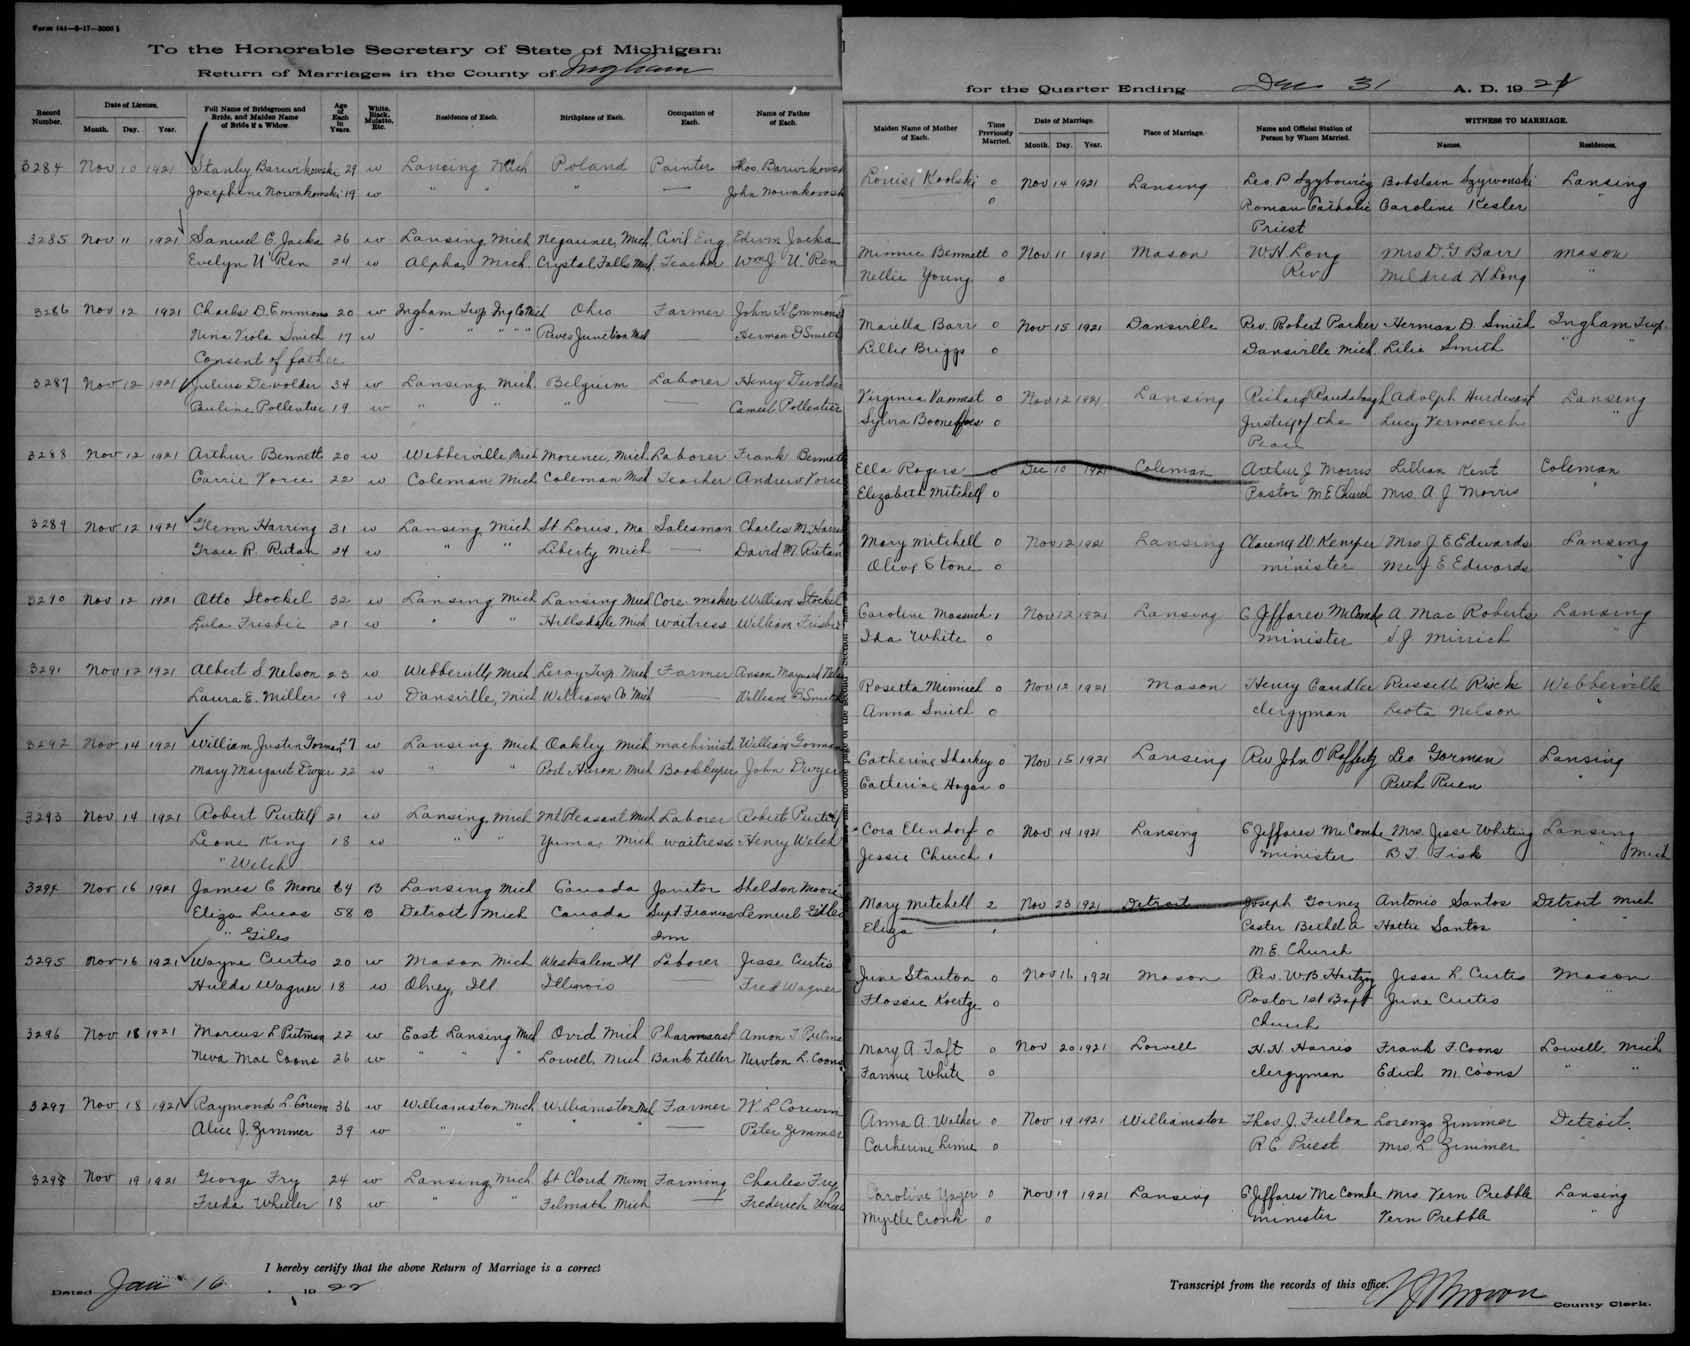 Form 141—8-17—3000
To the Honorable Secretary of State of Michigan:
Return of Marriages in the County of Ingham
for the Quarter Ending Dec 31 A. D. 1921
Record Number. Date of License. Month. Day. Year. Full Name of Bridegroom and Bride, and Maiden Name of Bride if a Widow. Age of Each in Years. White, Black, Mulatto, Etc. Residence of Each. Birthplace of Each. Occupation of Each. Name of Father of Each. Maiden Name of Mother of Each. Time Previously Married. Date of Marriage. Month. Day. Year. Place of Marriage. Name and Official Station of Person by Whom Married. WITNESS TO MARRIAGE. Names. Residences.
3284 Nov 10 1921 Stanley Barwikowski 29 w Lansing Mich Poland Painter Thos Barwikowski Louise 0 Nov 14 1921 Lansing Leo P Szybowicz Lansing
Josephine Nowakowski 19 w " " " — John Nowakowski 0 Roman Catholic Caroline Kesler "
Priest
3285 Nov 11 1921 Samuel C. Jacka 26 w Lansing, Mich Negaunee, Mich. Civil Eng. Edwin Jacka Minnie Bennett 0 Nov 11 1921 Mason W. H. Long Mrs D. G Barr Mason
Evelyn U'Ren 24 w Alpha, Mich. Crystal Falls Mich. Teacher Wm J U'Ren Nellie Young 0 Rev. Mildred H Long "
3286 Nov 12 1921 Charles D. Emmons 20 w Ingham Twp Ing Co Mich Ohio Farmer John K Emmons Maretta Barr 0 Nov 15 1921 Dansville Rev. Robert Parker Herman D. Smith Ingham Twp.
Nina Viola Smith 17 w " " " " Rives Junction Mich — Herman D Smith Lillie Briggs 0 Dansville Mich. Lilie Smith " "
Consent of father
3287 Nov 12 1921 Julius Devolder 34 w Lansing, Mich. Belgium Laborer Henry Devolder Virginia 0 Nov 12 1921 Lansing Richard Raudabaugh Adolph Lansing
Pauline Pollentier 19 w " " " — Camiel Pollentier Sylvia 0 Justice of the Lucy Vermeersch "
Peace
3288 Nov 12 1921 Arthur Bennett 20 w Webberville Mich Morenci, Mich. Laborer Frank Bennett Ella Rogers 0 Dec 10 1921 Coleman Arthur J Morris Lillian Kent Coleman
Carrie Vorce 22 w Coleman Mich Coleman Mich Teacher Andrew Vorce Elizabeth Mitchell 0 Pastor M E Church Mrs. A J Morris "
3289 Nov 12 1921 Glenn Harring 31 w Lansing, Mich St Louis, Mo Salesman Charles M. Mary Mitchell 0 Nov 12 1921 Lansing Clarence W. Kemper Mrs J E Edwards Lansing
Grace R. Rutan 24 w " " Liberty Mich — David M. Rutan Olive Stone 0 minister Mr J E Edwards "
3290 Nov 12 1921 Otto Stockel 32 w Lansing Mich Lansing Mich Core maker William Stockel Caroline 1 Nov 12 1921 Lansing C Jeffares McCombe A Mac Roberts Lansing
Lula Frisbie 21 w " " Hillsdale Mich waitress William Frisbie Ida White 0 minister "
3291 Nov 12 1921 Albert S Nelson 23 w Webberville, Mich Leroy Twp. Mich Farmer Anson Maynard Nelson Rosetta Minnich 0 Nov 12 1921 Mason Henry Candler Russell Webberville
Laura E. Miller 19 w Dansville, Mich Williams Co Mich — William Anna Smith 0 clergyman Leota Nelson "
3292 Nov 14 1921 William Justin Gorman 27 w Lansing, Mich Oakley Mich machinist William Gorman Catherine Sharkey 0 Nov 15 1921 Lansing Rev John O'Rafferty Leo Gorman Lansing
Mary Margaret Dwyer 22 w " " Port Huron Mich Bookkeeper John Dwyer Catherine Hogan 0 Ruth Ruen "
3293 Nov 14 1921 Robert Purtill 21 w Lansing, Mich Mt Pleasant Mich Laborer Robert Purtill Cora Elendorf 0 Nov 14 1921 Lansing C Jeffares McCombe Mrs. Jesse Whiting Lansing
Leone King 18 w " " Yuma, Mich waitress Henry Welch Jessie Church 1 minister B. T. Fisk " Mich
" Welch
3294 Nov 16 1921 James C Moore 64 B Lansing Mich Canada Janitor Sheldon Moore Mary Mitchell 2 Nov 23 1921 Detroit Joseph Gomez Antonio Santos Detroit Mich
Eliza Lucas 58 B Detroit Mich Canada Supt Frances Lemuel Giles Eliza — 1 Pastor Bethel A Hattie Santos " "
" Giles Inn M. E. Church
3295 Nov 16 1921 Wayne Curtis 20 w Mason Mich Westralem Ill Laborer Jesse Curtis June Stanton 0 Nov 16 1921 Mason Rev. W. B Hartzog Jesse L. Curtis Mason
Hulda Wagner 18 w Olney, Ill Illinois — Fred Wagner Flossie Koertge 0 Pastor 1st Bapt June Curtis "
Church
3296 Nov 18 1921 Marcus L Putman 22 w East Lansing Mich Ovid Mich Pharmacist Amon T Putman Mary A Taft 0 Nov 20 1921 Lowell H. H. Harris Frank F. Coons Lowell, Mich
Neva Mae Coons 26 w " " " Lowell, Mich Bank teller Newton L. Coons Fannie White 0 clergyman Edith M. Coons " "
3297 Nov 18 1921 Raymond L. Corwin 36 w Williamston Mich Williamston Mich Farmer W. L Corwin Anna A. Walker 0 Nov 19 1921 Williamston Thos. J. Fullon Lorenzo Zimmer Detroit.
Alice J. Zimmer 39 w " " " " — Peter Zimmer Catherine 0 R C Priest Mrs. L Zimmer "
3298 Nov 19 1921 George Fry 24 w Lansing, Mich St Cloud Minn Farming Charles Fry Caroline Yager 0 Nov 19 1921 Lansing C Jeffares McCombe Mrs. Vern Prebble Lansing
Freda Wheeler 18 w " " Filmath Mich — Frederick Myrtle Cronk 0 minister Vern Prebble "
I hereby certify that the above Return of Marriage is a correct
Transcript from the records of this office.
Dated Jan 16, 1922
County Clerk.